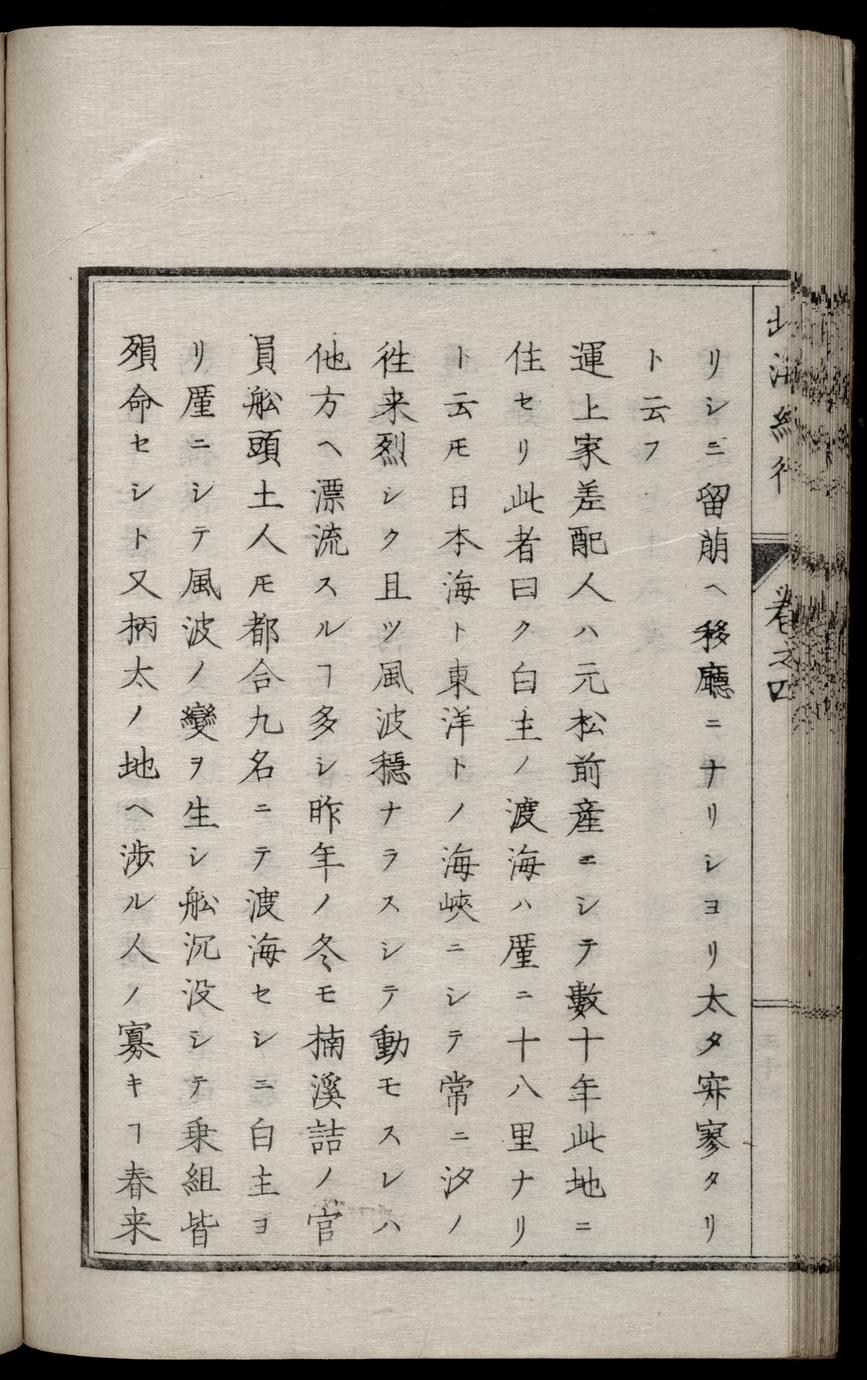 北海紀行 卷之四
リシニ留萠ヘ移廳ニナリシヨリ太タ寂寥タリ
ト云フ
運上家差配人ハ元松前産ニシテ數十年此地ニ
住セリ此者曰ク白主ノ渡海ハ厪ニ十八里ナリ
ト云𪜈日本海ト東洋トノ海峽ニシテ常ニ汐ノ
徃来烈シク且ツ風波穩ナラスシテ動モスレハ
他方ヘ漂流スルヿ多シ昨年ノ冬モ楠溪詰ノ官
員舩頭土人𪜈都合九名ニテ渡海セシニ白主ヨ
リ厪ニシテ風波ノ變ヲ生シ舩沉没シテ乗組皆
殞命セシト又柄太ノ地ヘ渉ル人ノ寡キヿ春来